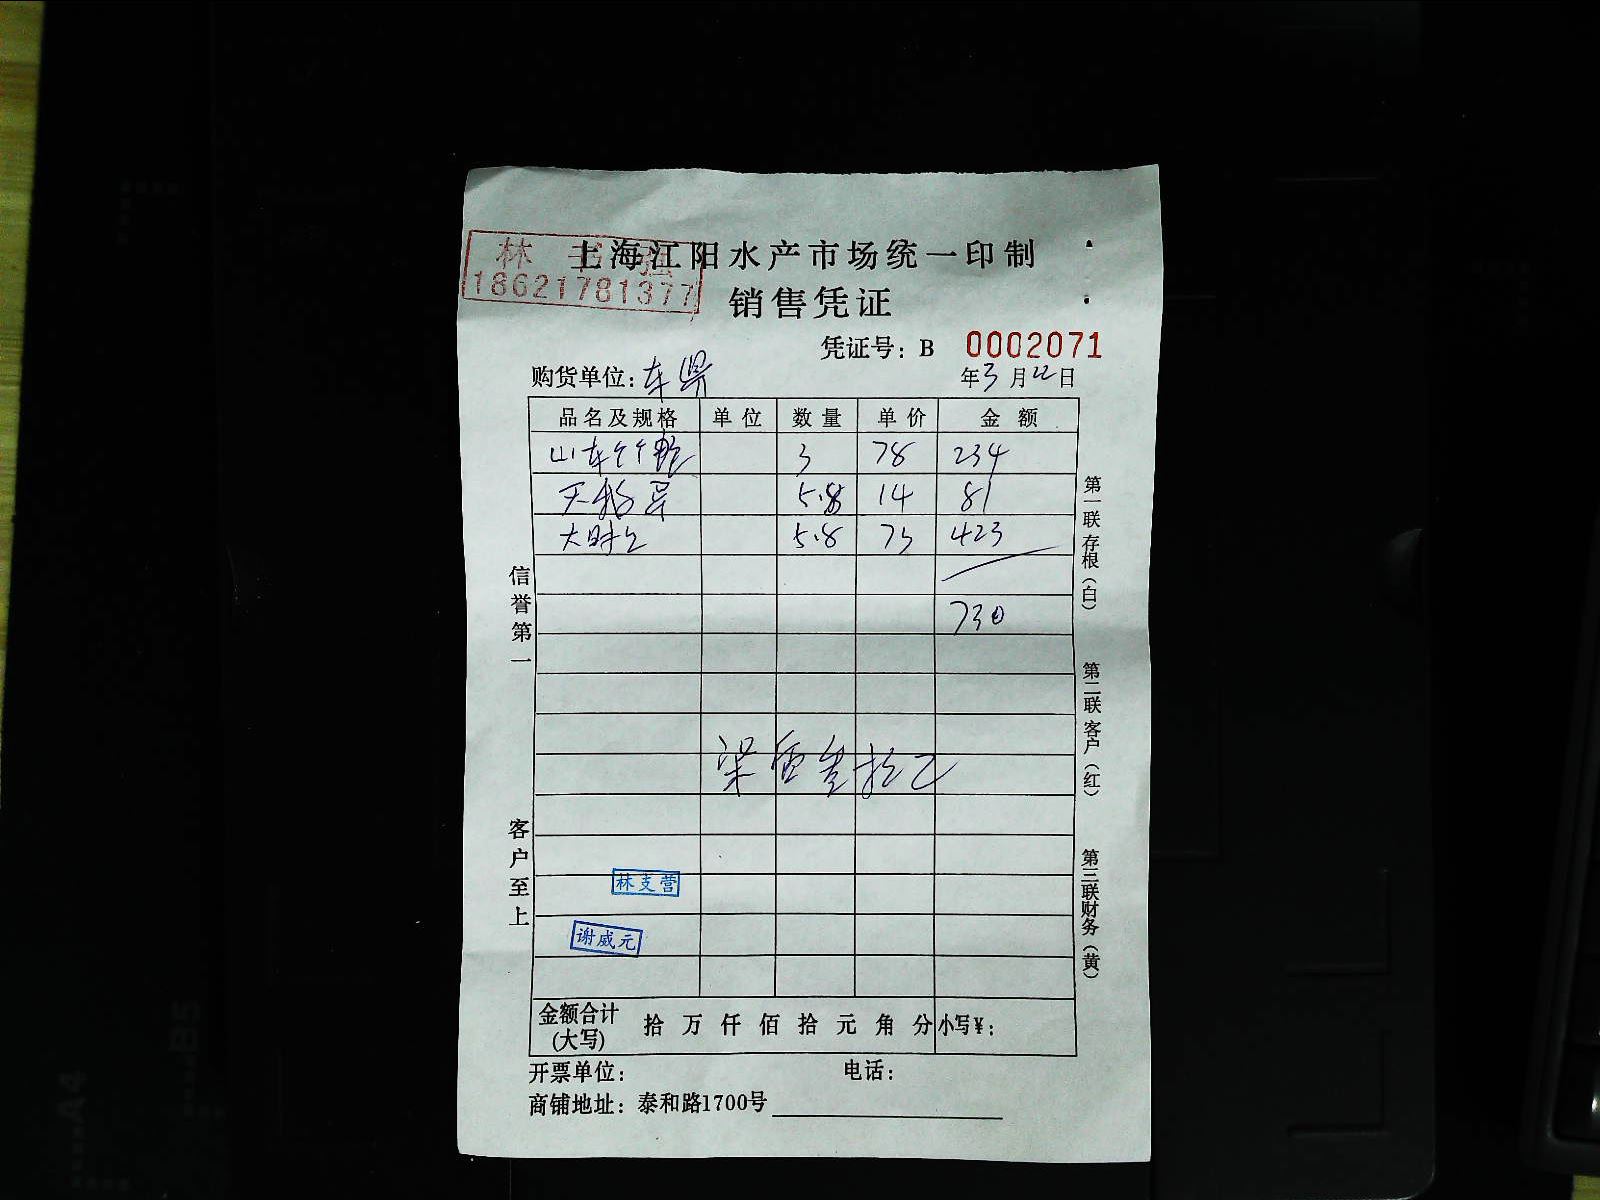 林书强
18621781377
上海江阳水产市场统一印制
销售凭证
凭证号：B 0002071
购货单位：车
年3月22日
品名及规格 单位 数量 单价 金额
山东 3 78 234
天 5.8 14 81
大 5.8 73 423
730
柒百叁拾
信誉第一
客户至上
第一联存根（白）
第二联客户（红）
第三联财务（黄）
林支营
谢威元
金额合计（大写） 拾万仟佰拾元角分 小写¥：
开票单位： 电话：
商铺地址：泰和路1700号